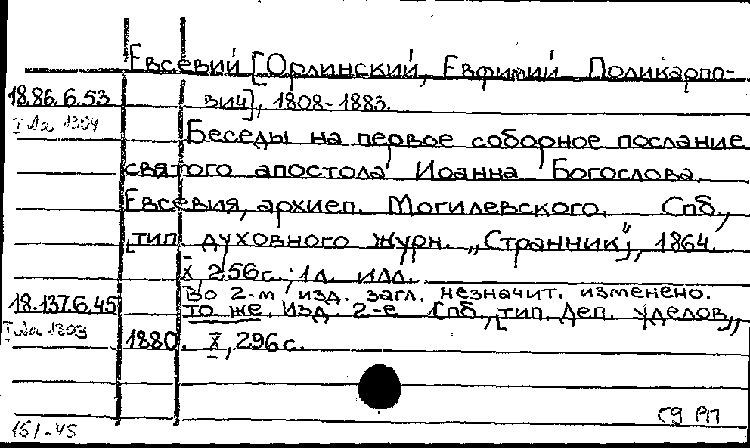 Евсевий [Орлинский, Евфимий Поликарпо-
18.86.6.53 вич], 1808-1883.
Беседы на первое соборное послание
святого апостола Иоанна Богослова.
Евсевия, архиеп. Могилевского. Спб.,
[тип. духовного журн. „Странник"], 1864.
X, 256 с.; 1 л. илл.
Во 2-м изд. загл. незначит. изменено.
18.137.6.45 То же. Изд. 2-е Спб., [тип. Деп. уделов],
1880. X, 296 с.
151-45